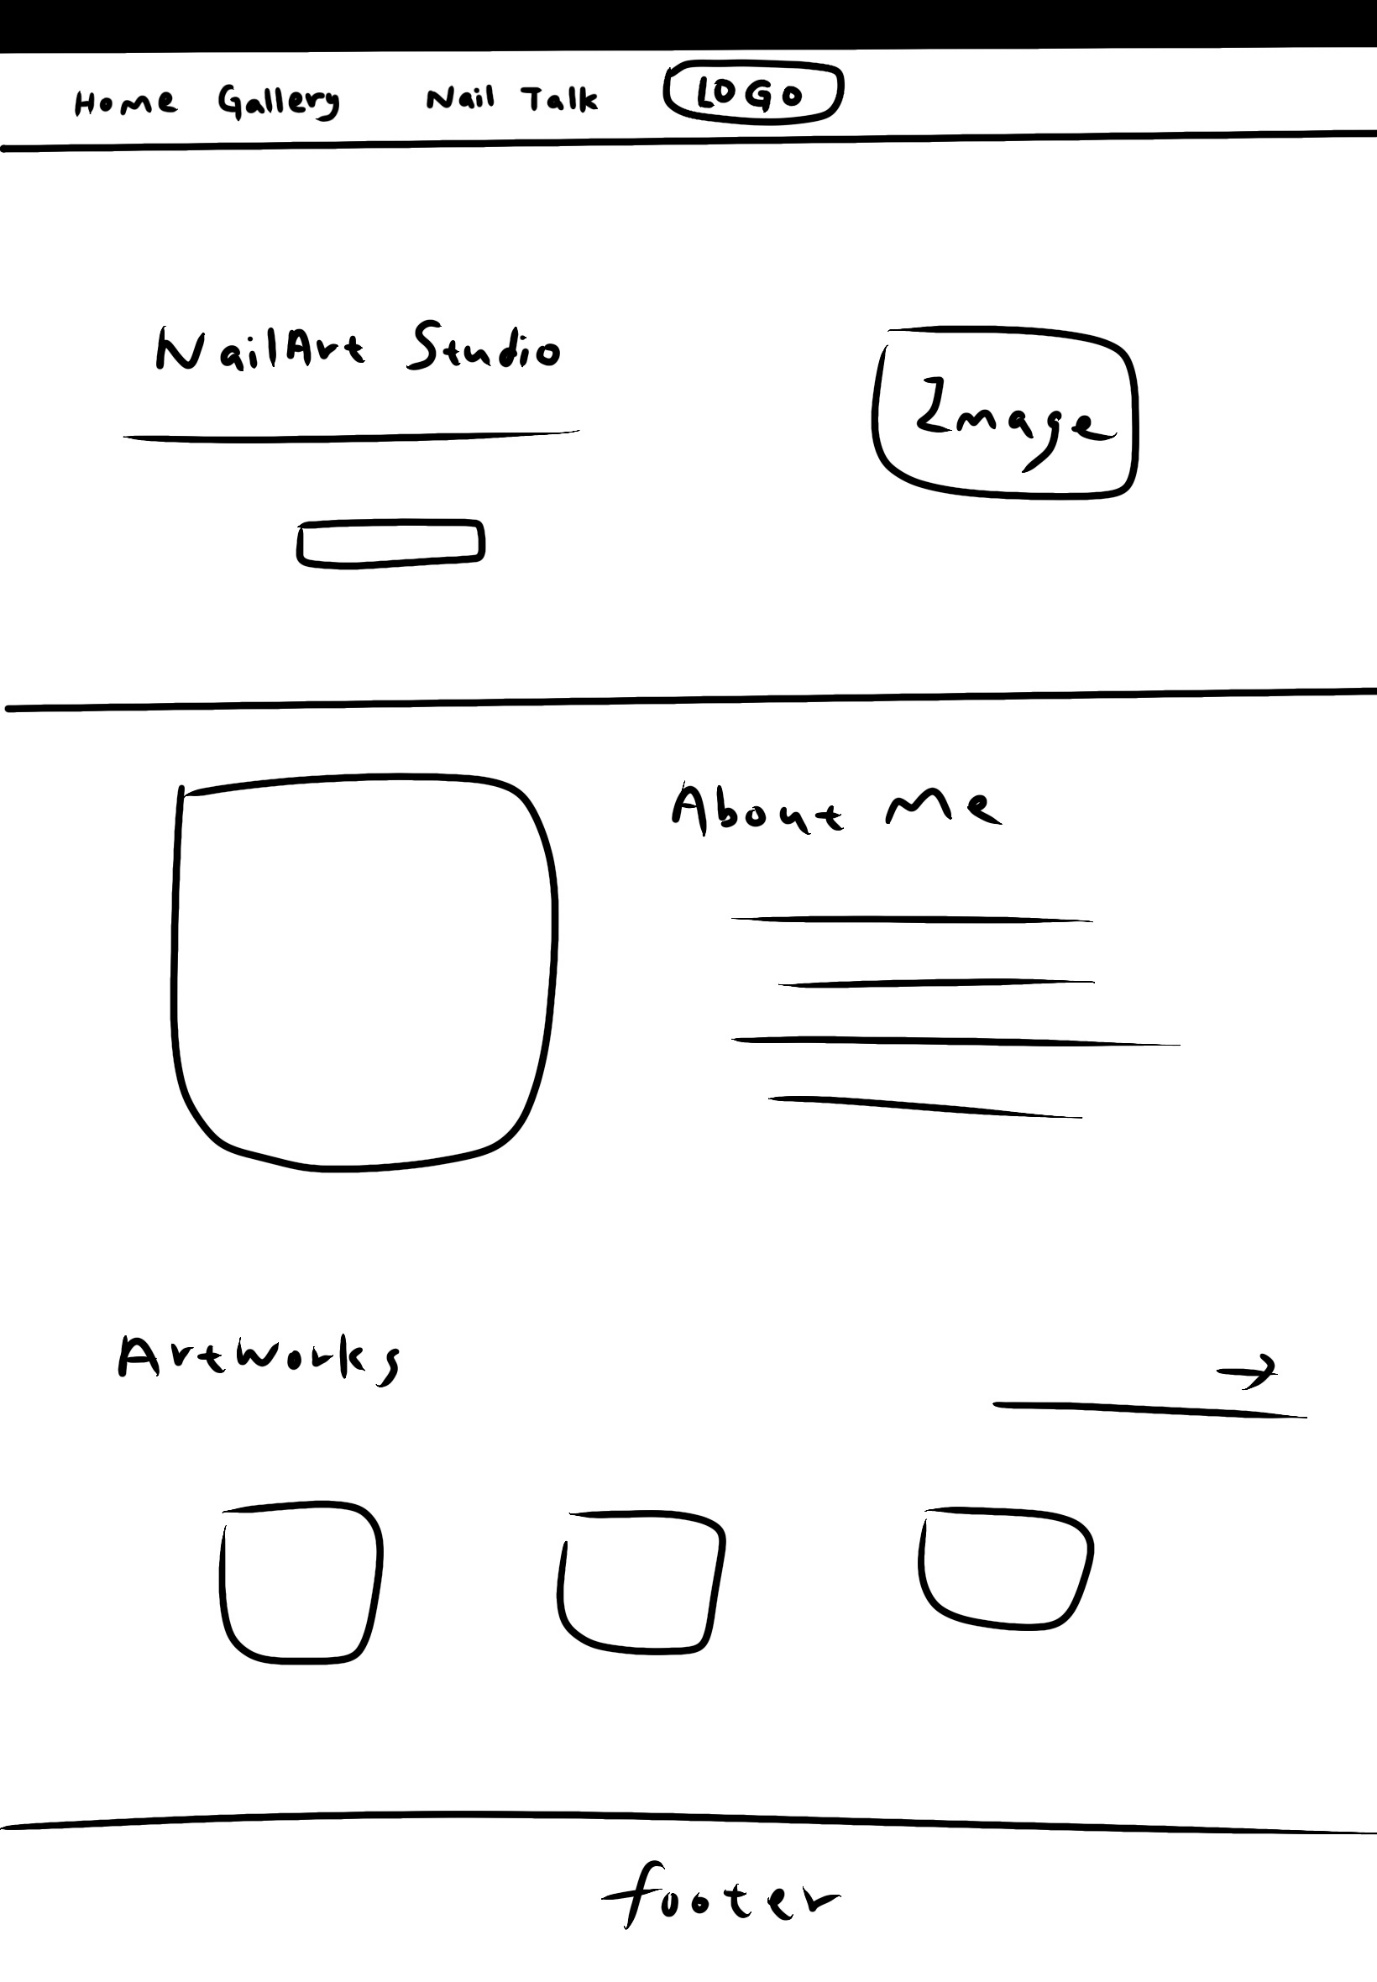 Home Gallery Nail Talk LOGO
NailArt Studio
Image
About Me
Artworks
→
footer